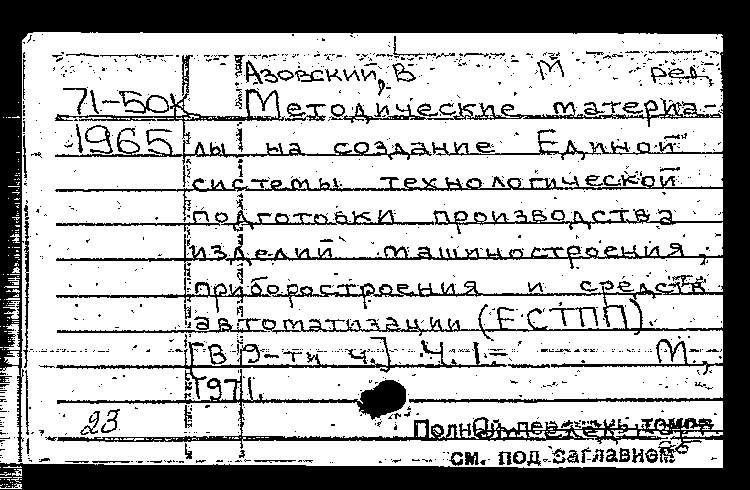 Азовский, В М ред.
71-50к Методические материа-
1965 лы на создание Единой
системы технологической
подготовки производства
изделий машиностроения,
приборостроения и средств
автоматизации (ЕСТПП).
[В 9-ти ч.] Ч. 1.- М.,
1971.
23
Полный перечень томов
см. под заглавием